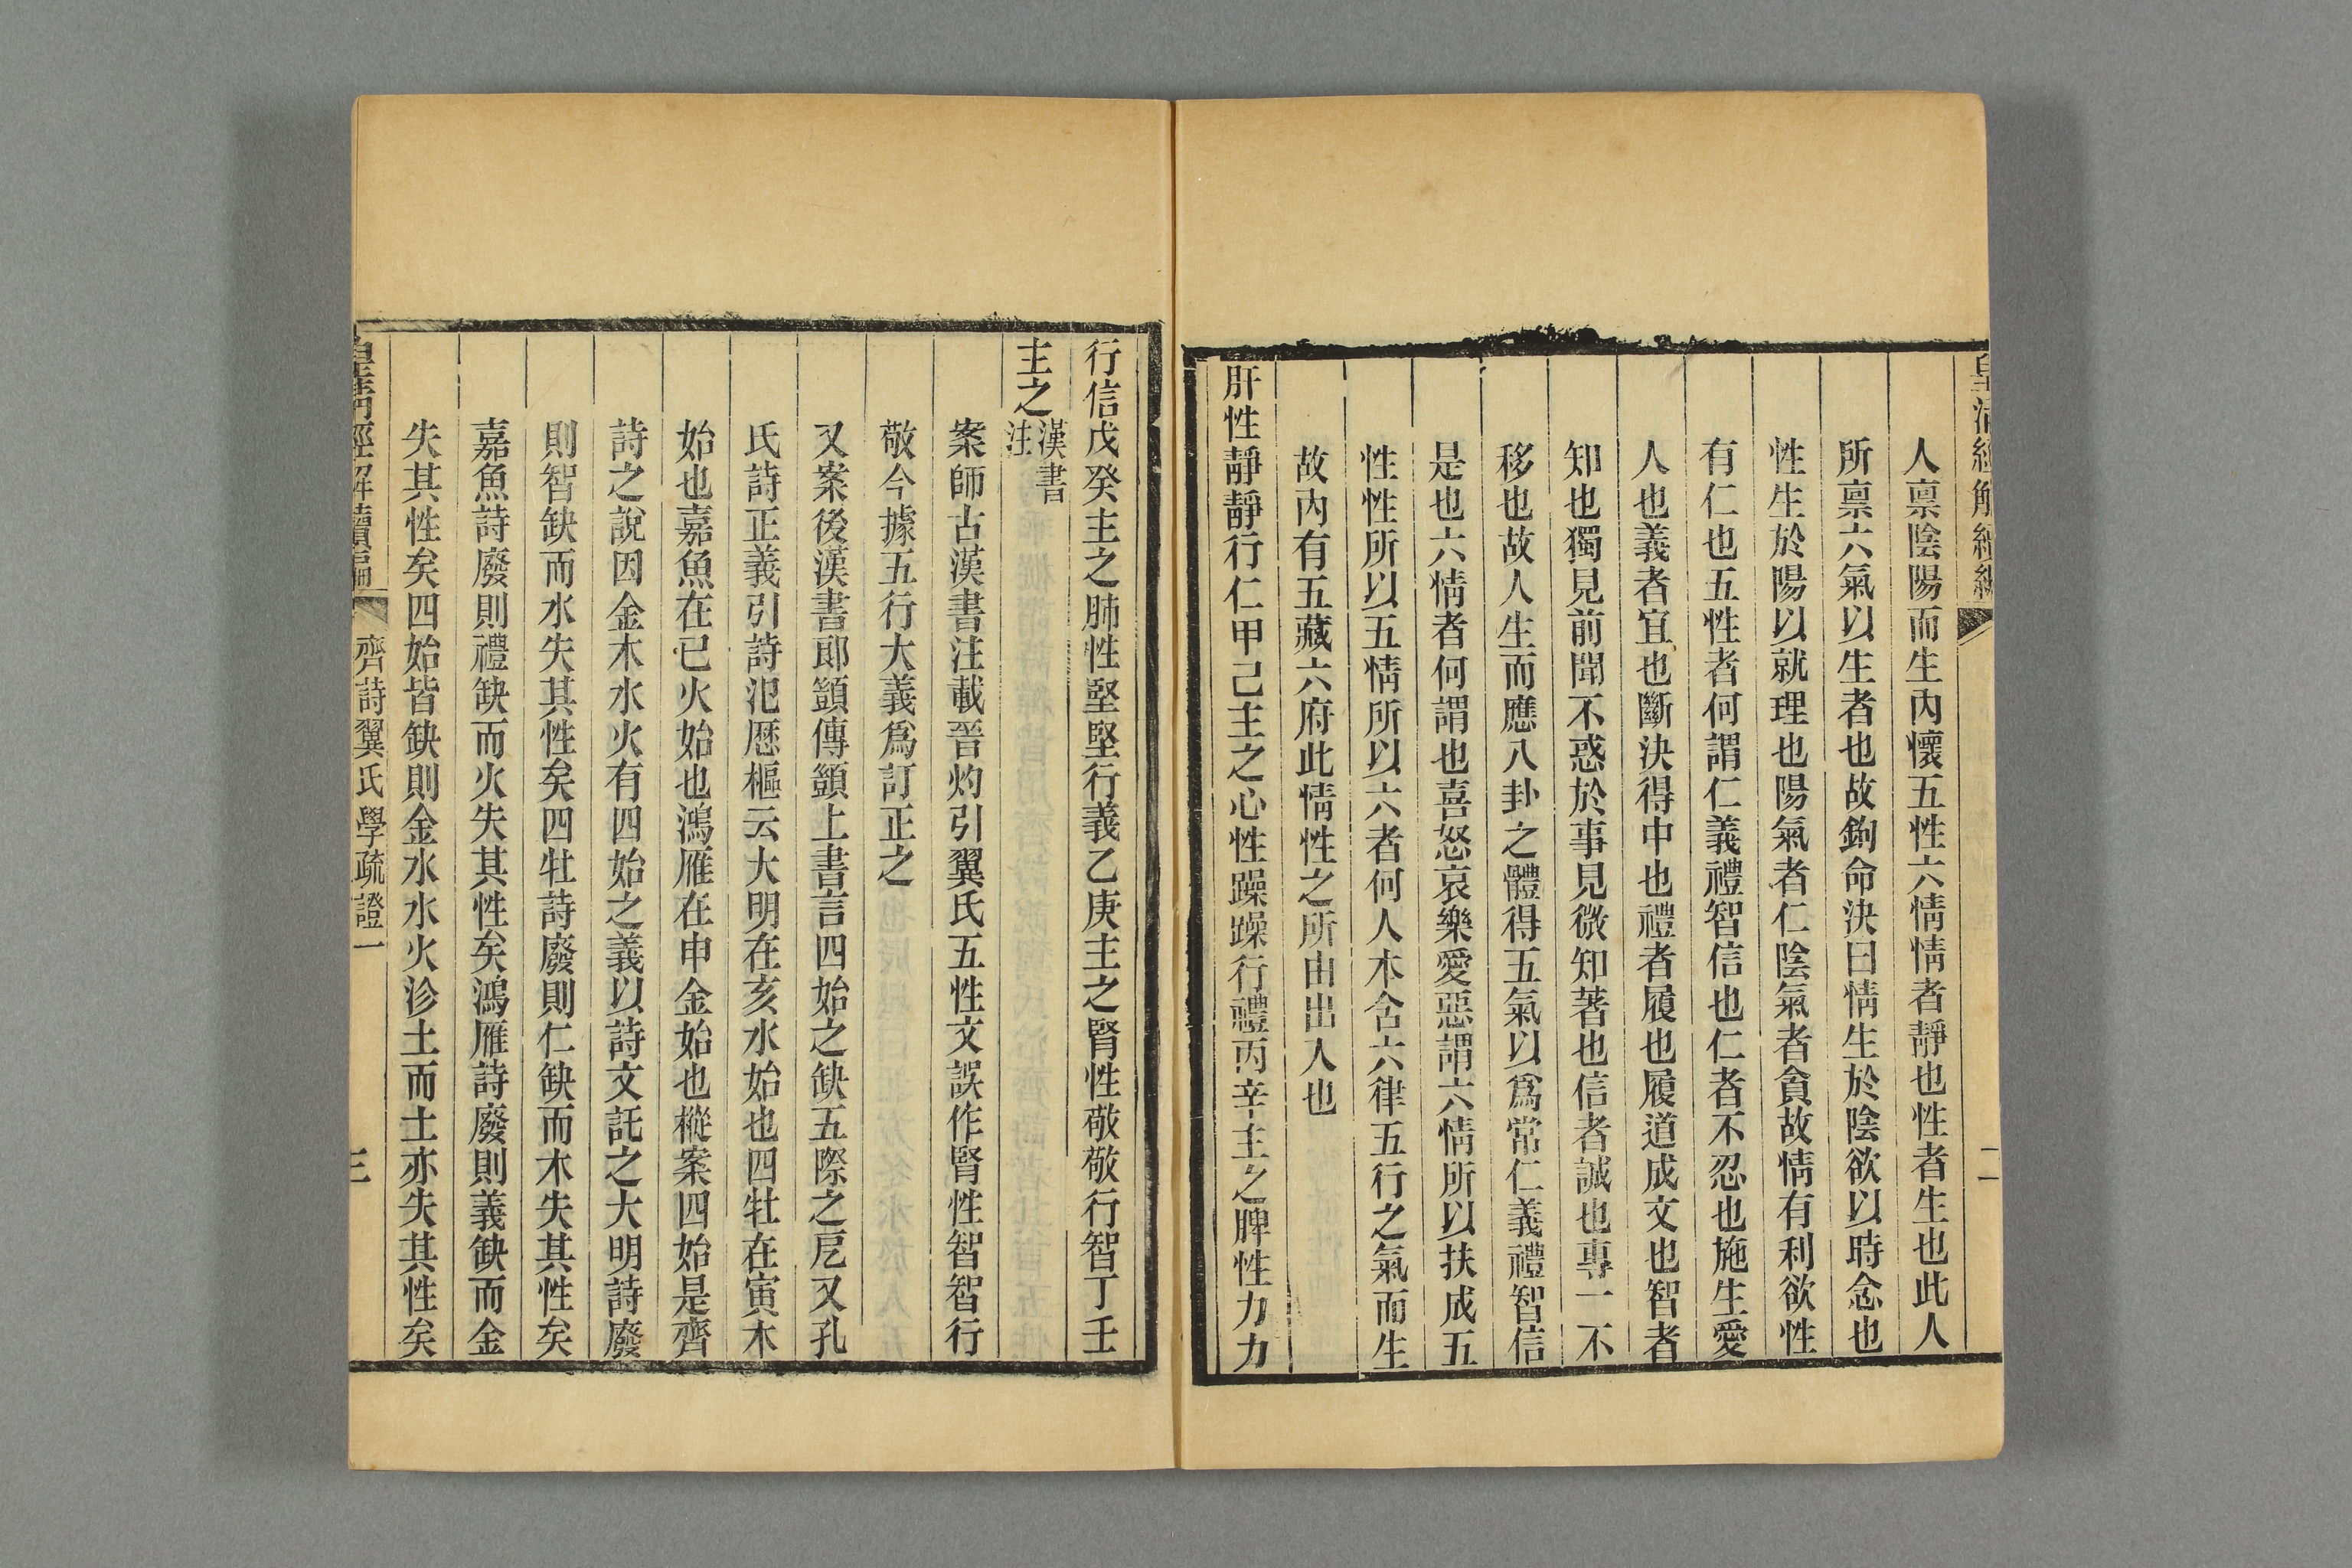 皇清經解續編
二
人禀陰陽而生內懷五性六情情者靜也性者生也此人
所禀六氣以生者也故鉤命決曰情生於陰欲以時念也
性生於陽以就理也陽氣者仁陰氣者貪故情有利欲性
有仁也五性者何謂仁義禮智信也仁者不忍也施生愛
人也義者宜也斷決得中也禮者履也履道成文也智者
知也獨見前聞不惑於事見微知著也信者誠也專一不
移也故人生而應八卦之體得五氣以爲常仁義禮智信
是也六情者何謂也喜怒哀樂愛惡謂六情所以扶成五
性性所以五情所以六者何人本含六律五行之氣而生
故內有五藏六府此情性之所由出入也
肝性靜靜行仁甲己主之心性躁躁行禮丙辛主之脾性力力
行信戊癸主之肺性堅堅行義乙庚主之腎性敬敬行智丁壬
主之漢書注
案師古漢書注載晉灼引翼氏五性文誤作腎性智智行
敬今據五行大義爲訂正之
又案後漢書郞顗傳顗上書言四始之缺五際之戹又孔
氏詩正義引詩氾厯樞云大明在亥水始也四牡在寅木
始也嘉魚在巳火始也鴻雁在申金始也樅案四始是齊
詩之說因金木水火有四始之義以詩文託之大明詩廢
則智缺而水失其性矣四牡詩廢則仁缺而木失其性矣
嘉魚詩廢則禮缺而火失其性矣鴻雁詩廢則義缺而金
失其性矣四始皆缺則金水水火沴土而土亦失其性矣
皇清經解續編
齊詩翼氏學疏證一
三